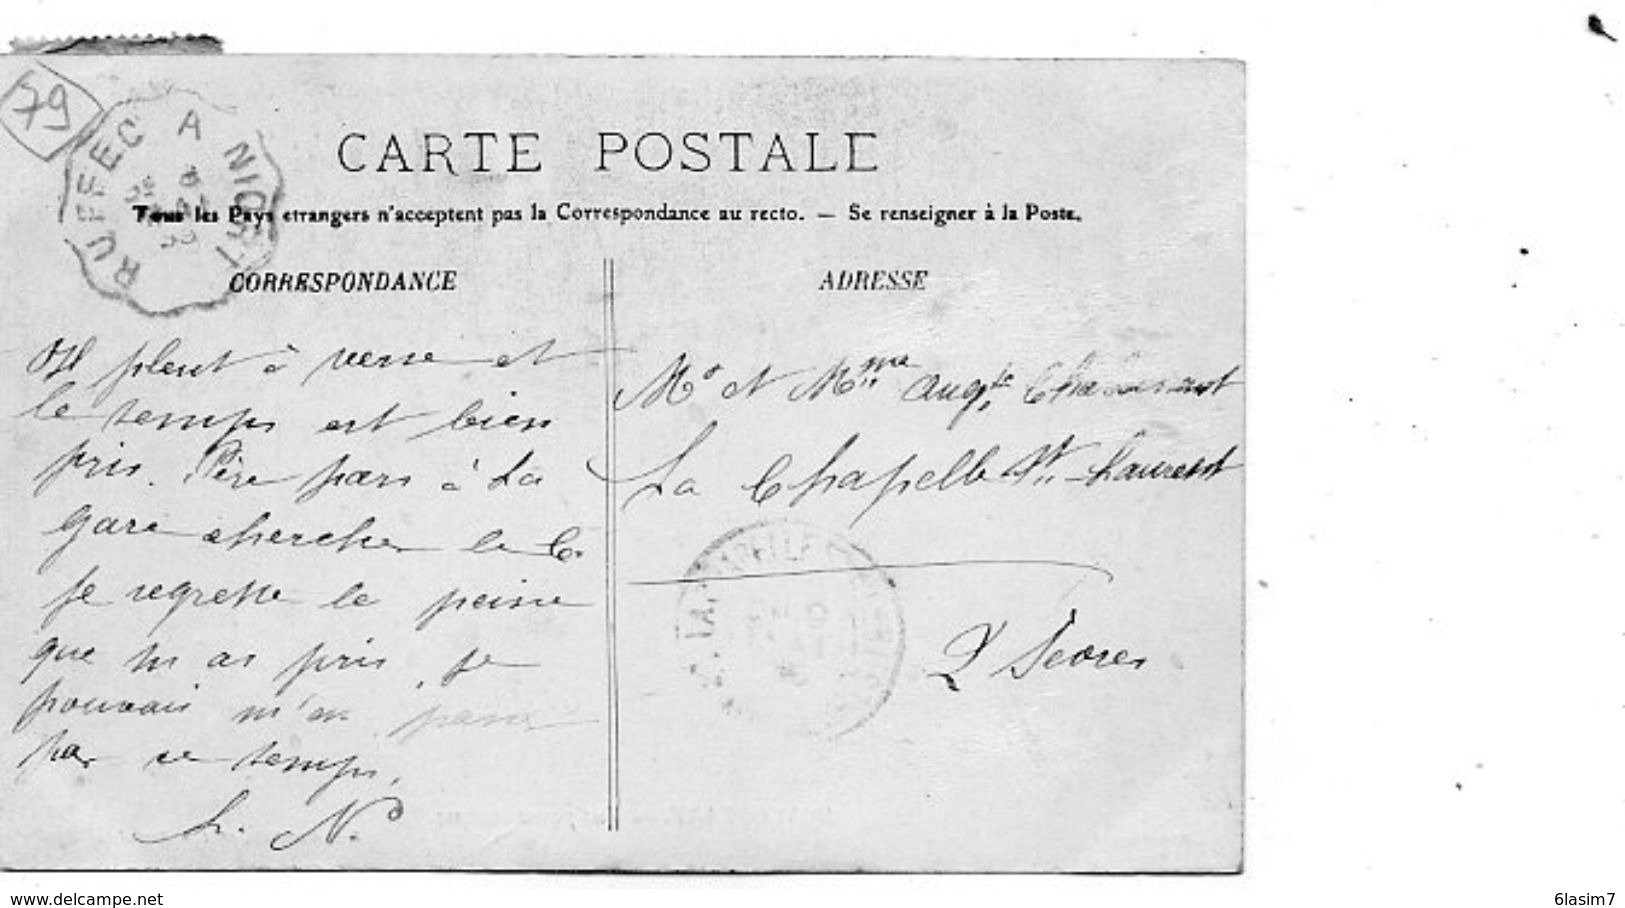 79
RUFFEC A NIORT
CARTE POSTALE
Tous les Pays etrangers n'acceptent pas la Correspondance au recto. — Se renseigner à la Poste.
CORRESPONDANCE
Il pleut à verse et
le temps est bien
pris. Père part à la
gare chercher le
Je regrette la peine
que tu as pris, je
pouvais m'en passer
par ce temps,
ADRESSE
Mr et Mme Augte
La Chapelle St Laurent
2 Sèvres
www.delcampe.net
6lasim7